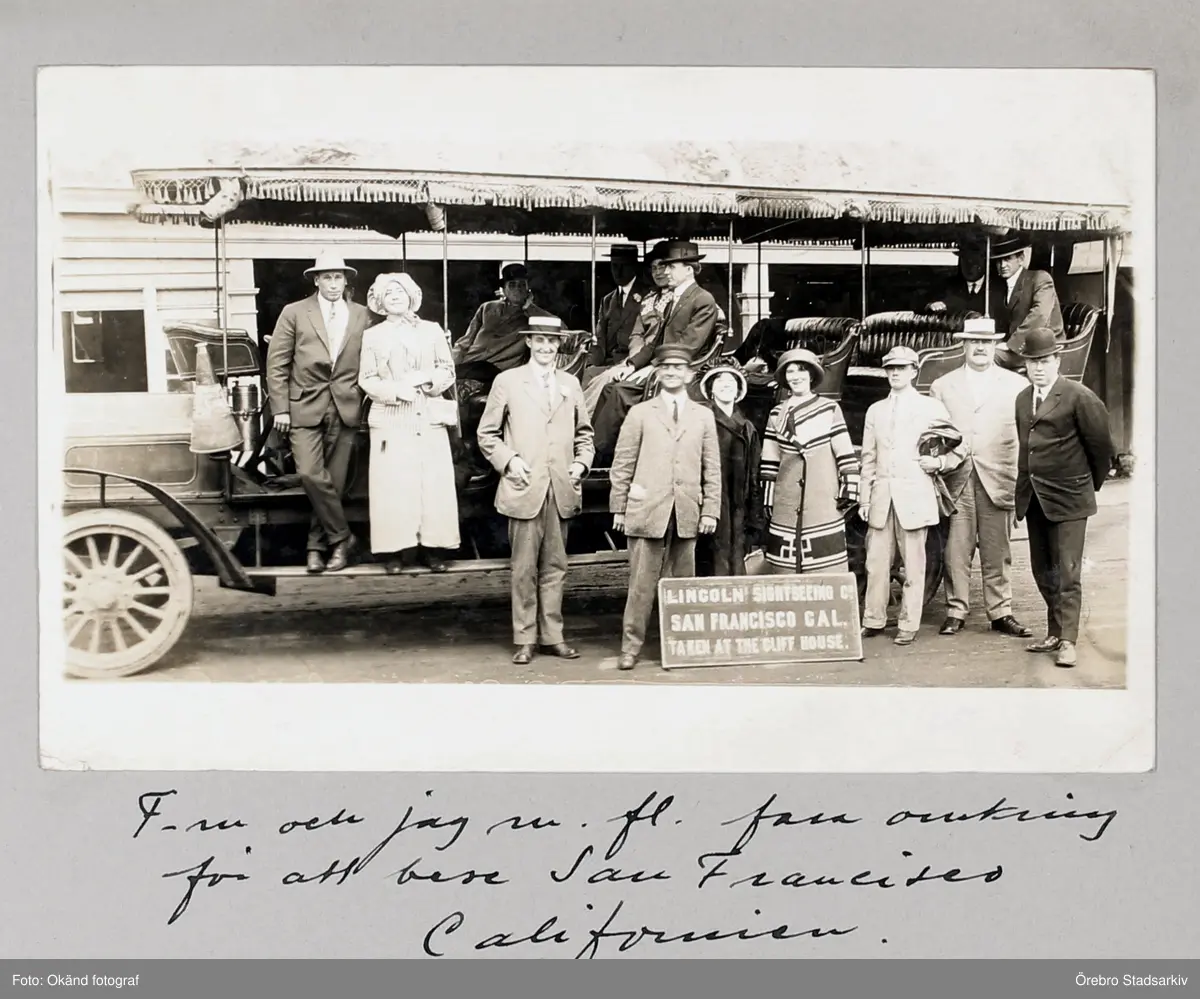 LINCOLN SIGHTSEEING Co
SAN FRANCISCO CAL.
TAKEN AT THE CLIFF HOUSE.
F-m och jag m. fl. fara omkring
för att bese San Francisco
Californien.
Foto: Okänd fotograf
Örebro Stadsarkiv